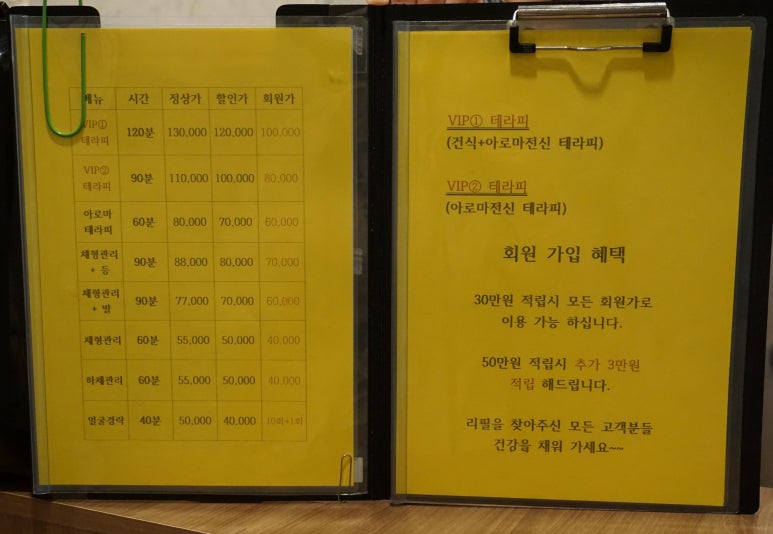 메뉴 시간 정상가 할인가 회원가
VIP① 테라피 120분 130,000 120,000 100,000
VIP② 테라피 90분 110,000 100,000 80,000
아로마 테라피 60분 80,000 70,000 60,000
체형관리 + 등 90분 88,000 80,000 70,000
체형관리 + 발 90분 77,000 70,000 60,000
체형관리 60분 55,000 50,000 40,000
하체관리 60분 55,000 50,000 40,000
얼굴경락 40분 50,000 40,000 10회+1회
VIP① 테라피
(건식+아로마전신 테라피)
VIP② 테라피
(아로마전신 테라피)
회원 가입 혜택
30만원 적립시 모든 회원가로
이용 가능 하십니다.
50만원 적립시 추가 3만원
적립 해드립니다.
리필을 찾아주신 모든 고객분들
건강을 채워 가세요~~